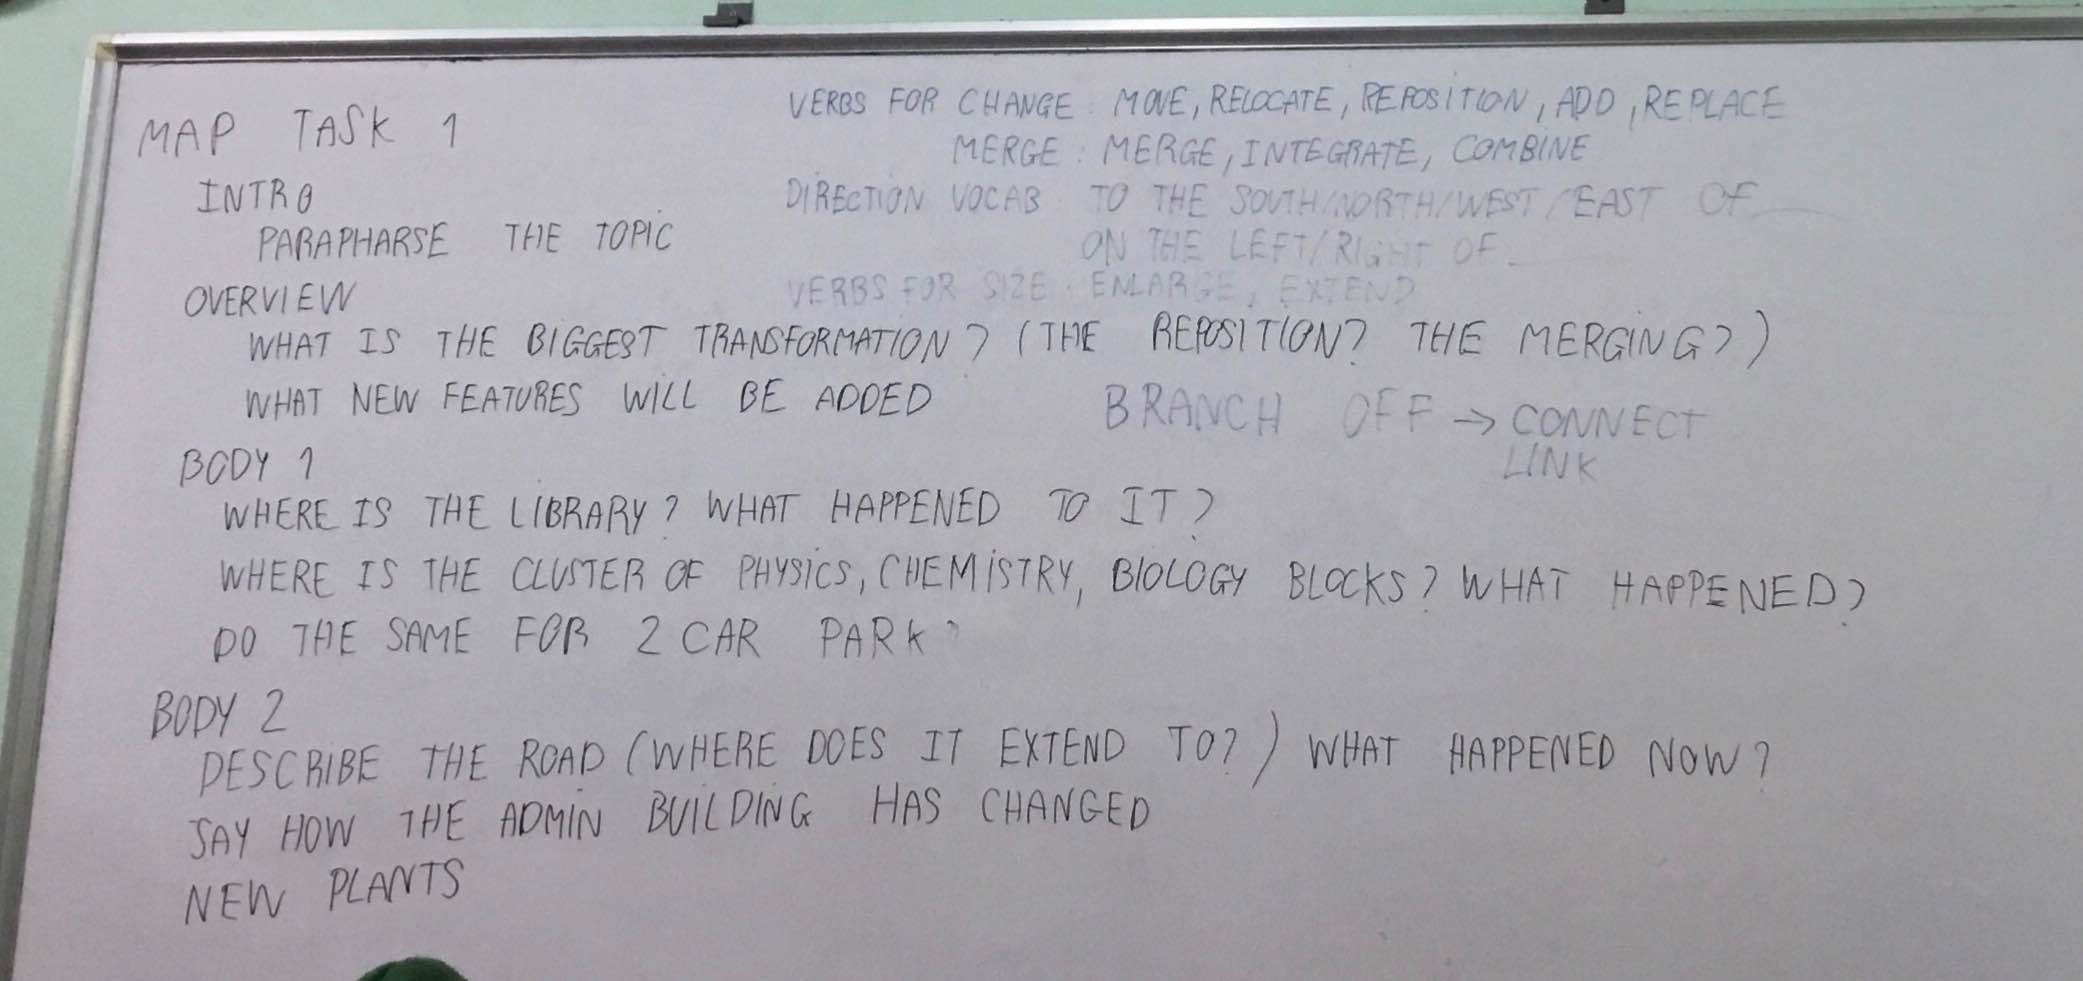 MAP TASK 1
INTRO
PARAPHARSE THE TOPIC
VERBS FOR CHANGE : MOVE, RELOCATE, REPOSITION, ADD, REPLACE
MERGE : MERGE, INTEGRATE, COMBINE
DIRECTION VOCAB : TO THE SOUTH/NORTH/WEST/EAST OF ___
ON THE LEFT/RIGHT OF ___
VERBS FOR SIZE : ENLARGE, EXTEND
OVERVIEW
WHAT IS THE BIGGEST TRANSFORMATION? (THE REPOSITION? THE MERGING?)
WHAT NEW FEATURES WILL BE ADDED
BRANCH OFF → CONNECT
LINK
BODY 1
WHERE IS THE LIBRARY? WHAT HAPPENED TO IT?
WHERE IS THE CLUSTER OF PHYSICS, CHEMISTRY, BIOLOGY BLOCKS? WHAT HAPPENED?
DO THE SAME FOR 2 CAR PARK
BODY 2
DESCRIBE THE ROAD (WHERE DOES IT EXTEND TO?) WHAT HAPPENED NOW?
SAY HOW THE ADMIN BUILDING HAS CHANGED
NEW PLANTS